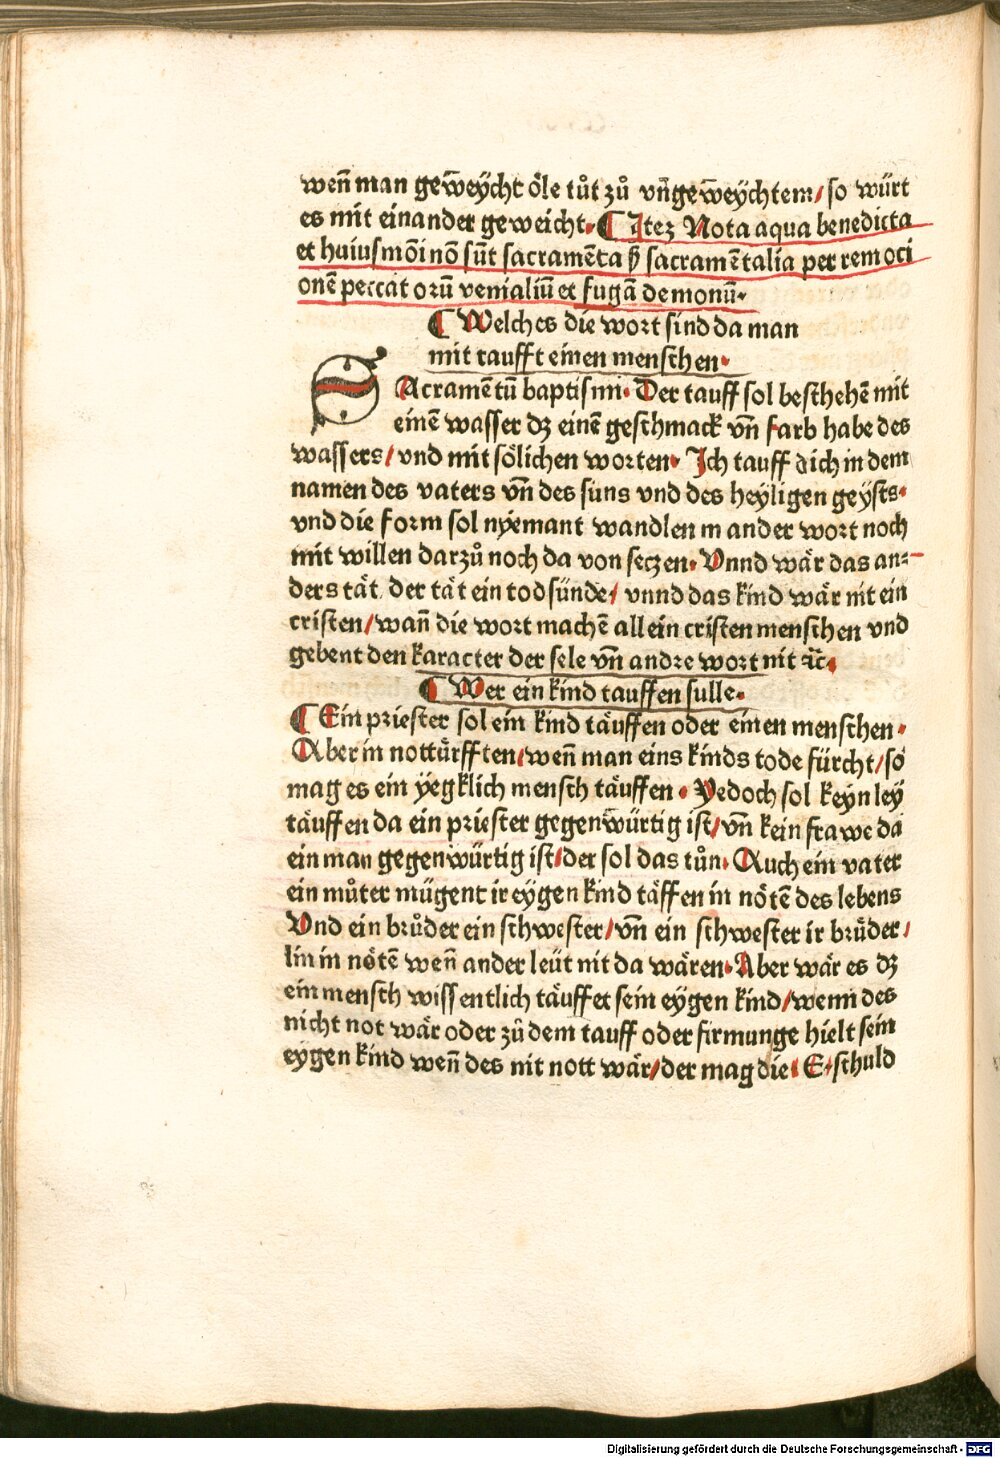 wen̄ man gew̄eÿcht öle tůt zů vn̄gew̄eÿchtem/ so würt
es mit einander geweicht. ¶ Itez Nota aqua benedicta
et huiusmōi nō sūt sacramēta sꝫ sacramētalia per remoci
onē peccatorū venialiū et fugā demonū.
¶ Welches die wort sind da man
mit taufft einen menschen.
SAcramētū baptismi. Der tauff sol beschehē mit
einē wasser dz einē geschmack vn̄ farb habe des
wassers/ vnd mit sölichen worten. Ich tauff dich in dem
namen des vaters vn̄ des suns vnd des heÿligen geÿsts.
vnd die form sol nyemant wandlen in ander wort noch
mit willen darzů noch da von seczen. Vnnd wär das an⸗
ders tät der tät ein todsünde/ vnnd das kind wär nit ein
cristen/ wan̄ die wort machē allein cristen menschen vnd
gebent den karacter der sele vn̄ andre wort nit ꝛc̄.
¶ Wer ein kind tauffen sulle.
¶ Ein priester sol ein kind täuffen oder einen menschen.
Aber in nottürfften/ wen̄ man eins kinds tode fürcht/ so
mag es ein ÿegklich mensch täuffen. Yedoch sol keyn leÿ
täuffen da ein priester gegenwürtig ist/ vn̄ kein frawe da
ein man gegenwürtig ist/ der sol das tůn. Auch ein vater
ein můter mügent ir eÿgen kind täffen in nötē des lebens
Vnd ein brůder ein schwester/ vn̄ ein schwester ir brüder/
lin in nötē wen̄ ander leüt nit da wären. Aber wär es dz
ein mensch wissentlich täuffet sein eÿgen kind/ wenn des
nicht not wär oder zů dem tauff oder firmunge hielt sein
eÿgen kind wen̄ des nit nott wär/ der mag die. E. schuld
Digitalisierung gefördert durch die Deutsche Forschungsgemeinschaft - DFG